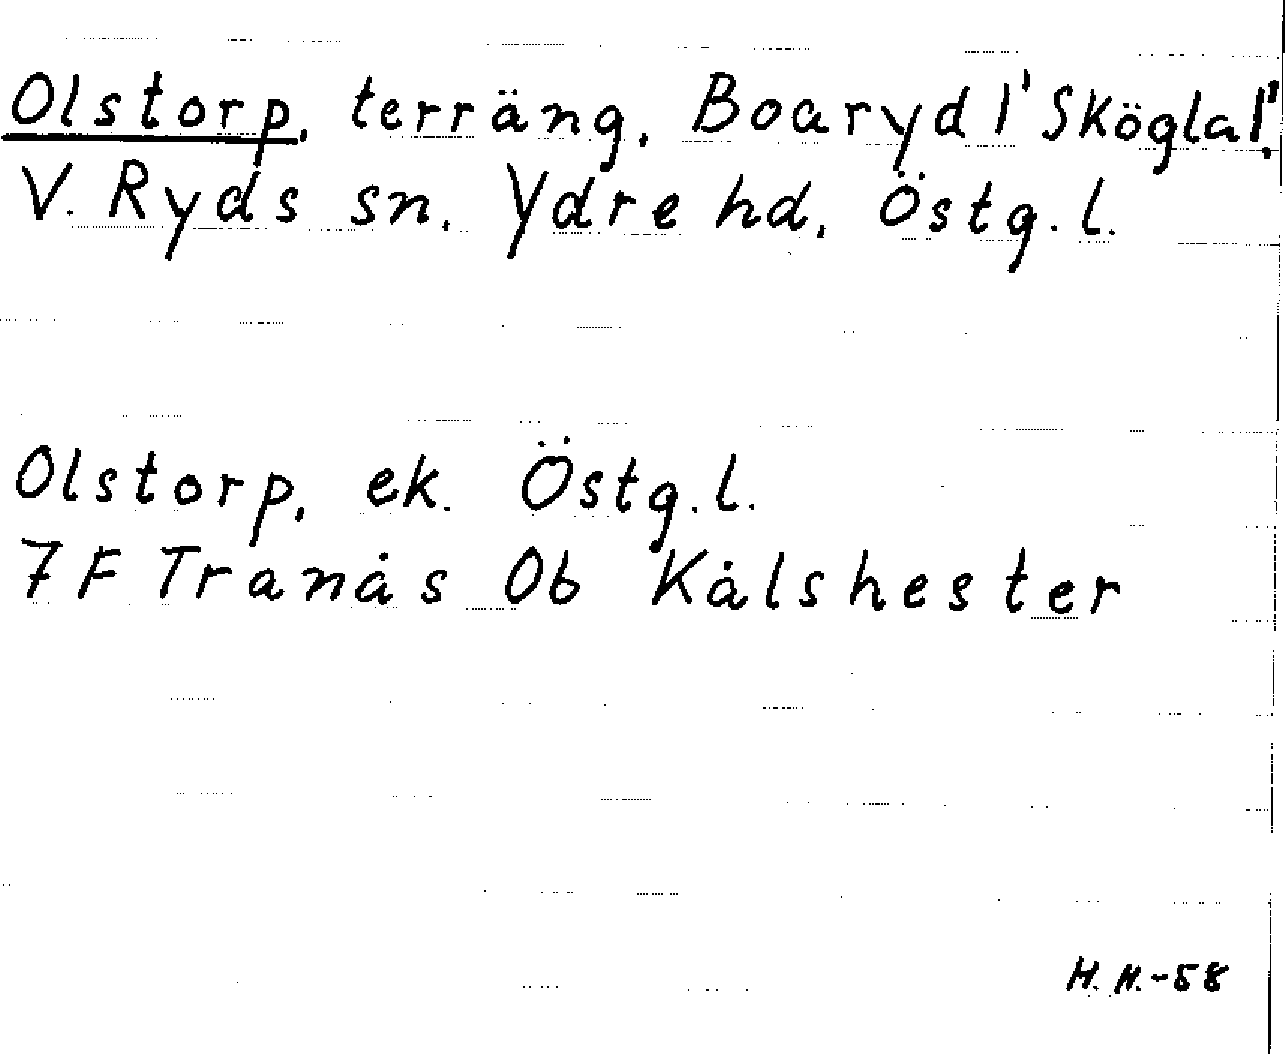 Olstorp, terräng, Boaryd 1' Skögla 1',
V. Ryds sn. Ydre hd, Östg. l.
Olstorp, ek. Östg. l.
7F Tranås 0b Kålshester
H. H.-58